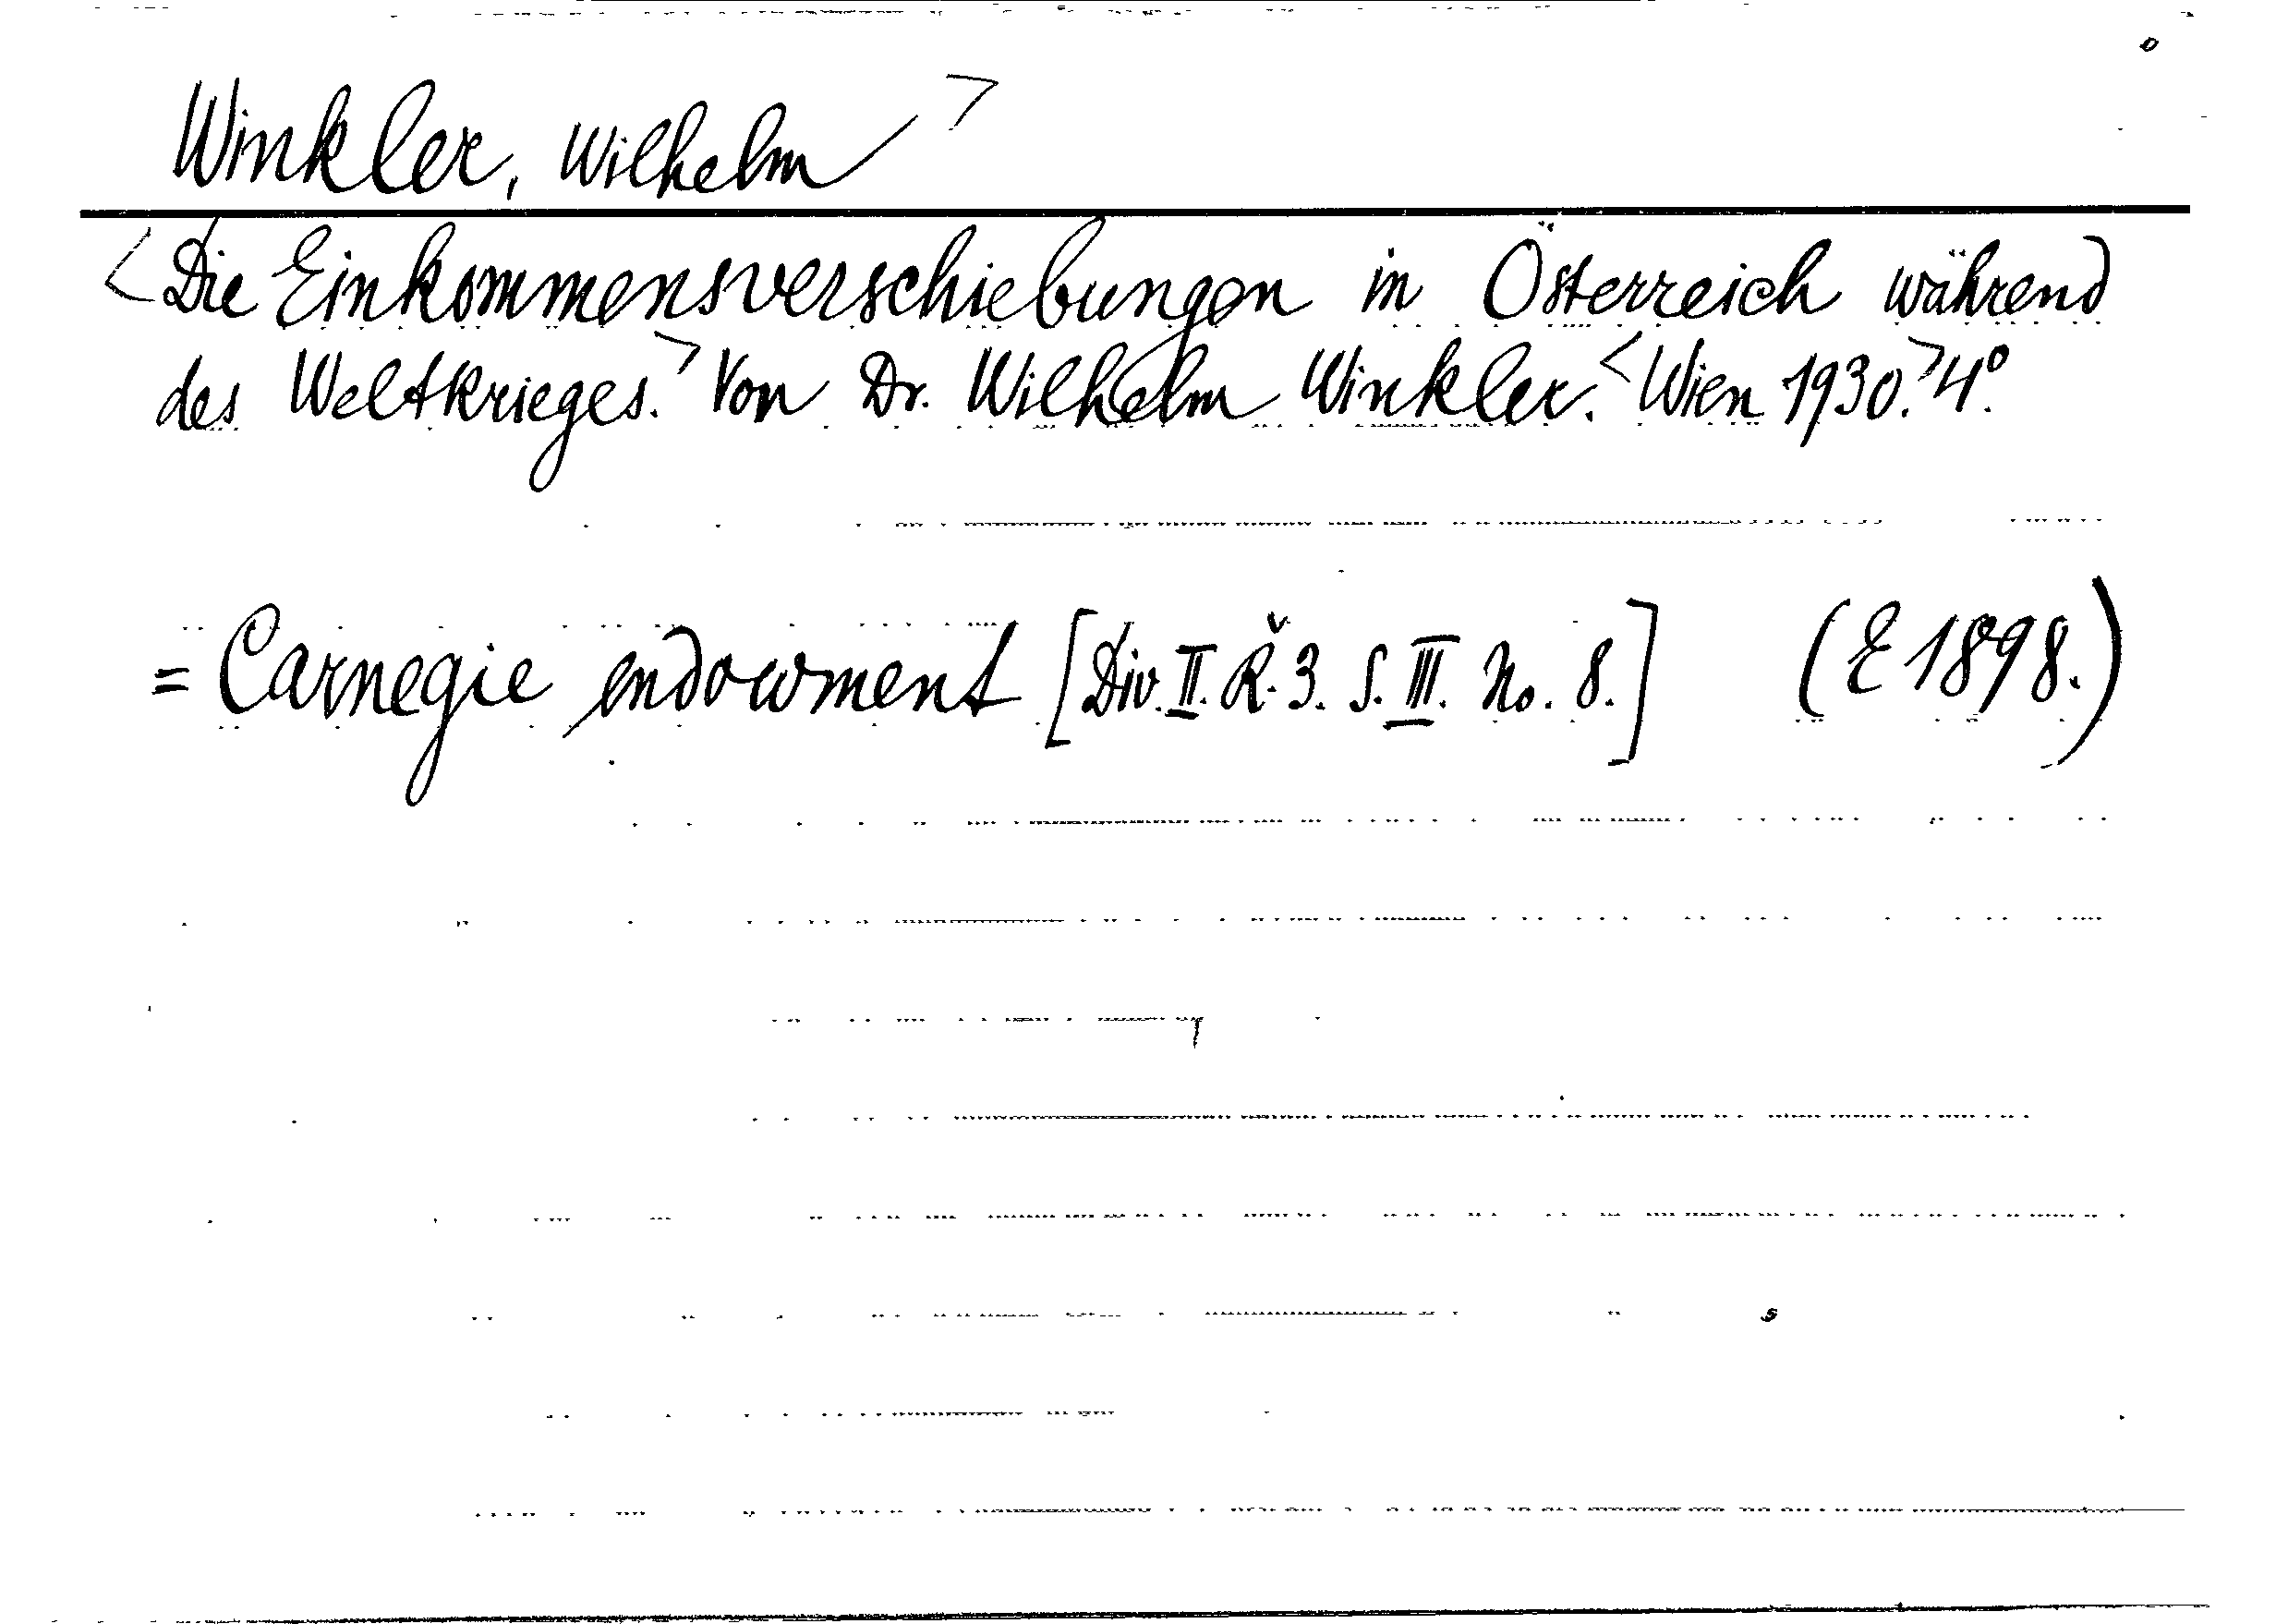 Winkler, Wilhelm >
<Die Einkommensverschiebungen in Österreich während
des Weltkrieges.> Von Dr. Wilhelm Winkler. <Wien 1930.> 4°.
= Carnegie endowment [Div. II. Ř. 3. S. III. No. 8.] (E 1898.)